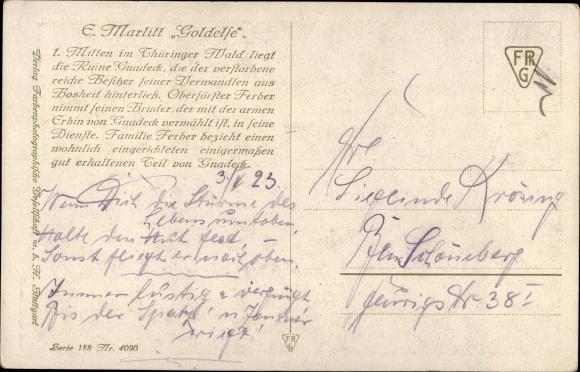 E. Marlitt „Goldelse“.
1. Mitten im Thüringer Wald liegt
die Ruine Gnadeck, die der verstorbene
reiche Besitzer seiner Verwandten aus
Bosheit hinterließ. Oberförster Ferber
nimmt seinen Bruder, der mit der armen
Erbin von Gnadeck vermählt ist, in seine
Dienste. Familie Ferber bezieht einen
wohnlich eingerichteten einigermaßen
gut erhaltenen Teil von Gnadeck.
Verlag Farbenphotographische Gesellschaft m. b. H. Stuttgart
23.
Wenn Dich die Stürme des
Lebens umtoben,
Halte den Hut fest, –
Sonst fliegt er nach oben.
Immer lustig u vergnügt
Bis der Spatz 'n Zentner
wiegt!
Serie 188 Nr. 4090
FPG
FPG
Frl.
Sieglinde Krösing
Bln Schöneberg
Feurigstr. 38 I